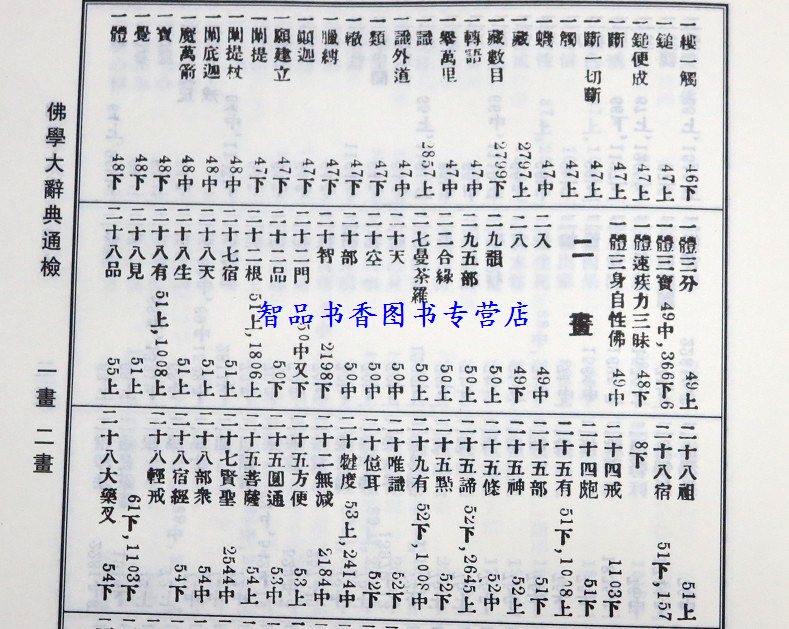 一樓一觸 46下
一鎚 47上
一鎚便成 47上
一斷 47上
一斷一切斷 47上
一觸 47上
一蠛 47中
一藏 2797上
一藏數目 2799下
一轉語 47中
一舉萬里 47中
一識 2857上
一識外道 47中
一類 47下
一轍 47中
一臘縛 47中
一顯迦 47下
一願建立 47下
一闡提 47下
一闡提杖 48中
一闡底迦 48中
一魔萬箭 48中
一寶 48下
一疊 48下
一體 48下
一體三分 49上
一體三寶 49中,366下6
一體速疾力三昧 48下
一體三身自性佛 49中
二畫
二入 49中
二八 49下
二九韻 50上
二九五部 50上
二二合緣 50上
二七曼荼羅 50上
二十天 50中
二十空 50中
二十部 50中
二十智 2198下
二十二門 50中又下
二十二品 50下
二十二根 51上,1806上
二十七宿 51上
二十八天 51上
二十八生 51上
二十八有 51上,1008上
二十八見 51上
二十八品 55上
二十八祖 51上
二十八宿 51下,157
8下
二十四戒 1103下
二十四皰 51下
二十五有 51下,1008上
二十五部 51下
二十五神 52上
二十五條 52中
二十五諦 52下,2645上
二十五點 52下
二十九有 52下,1008中
二十唯識 52下
二十億耳 52下
二十犍度 53上,2414中
二十二無減 2184中
二十五方便 53上
二十五圓通 53中
二十五菩薩 54上
二十七賢聖 2544中
二十八部衆 54中
二十八宿經 54下
二十八輕戒 61下,1103下
二十八大藥叉 54下
佛學大辭典通檢
一畫 二畫
智品书香图书专营店